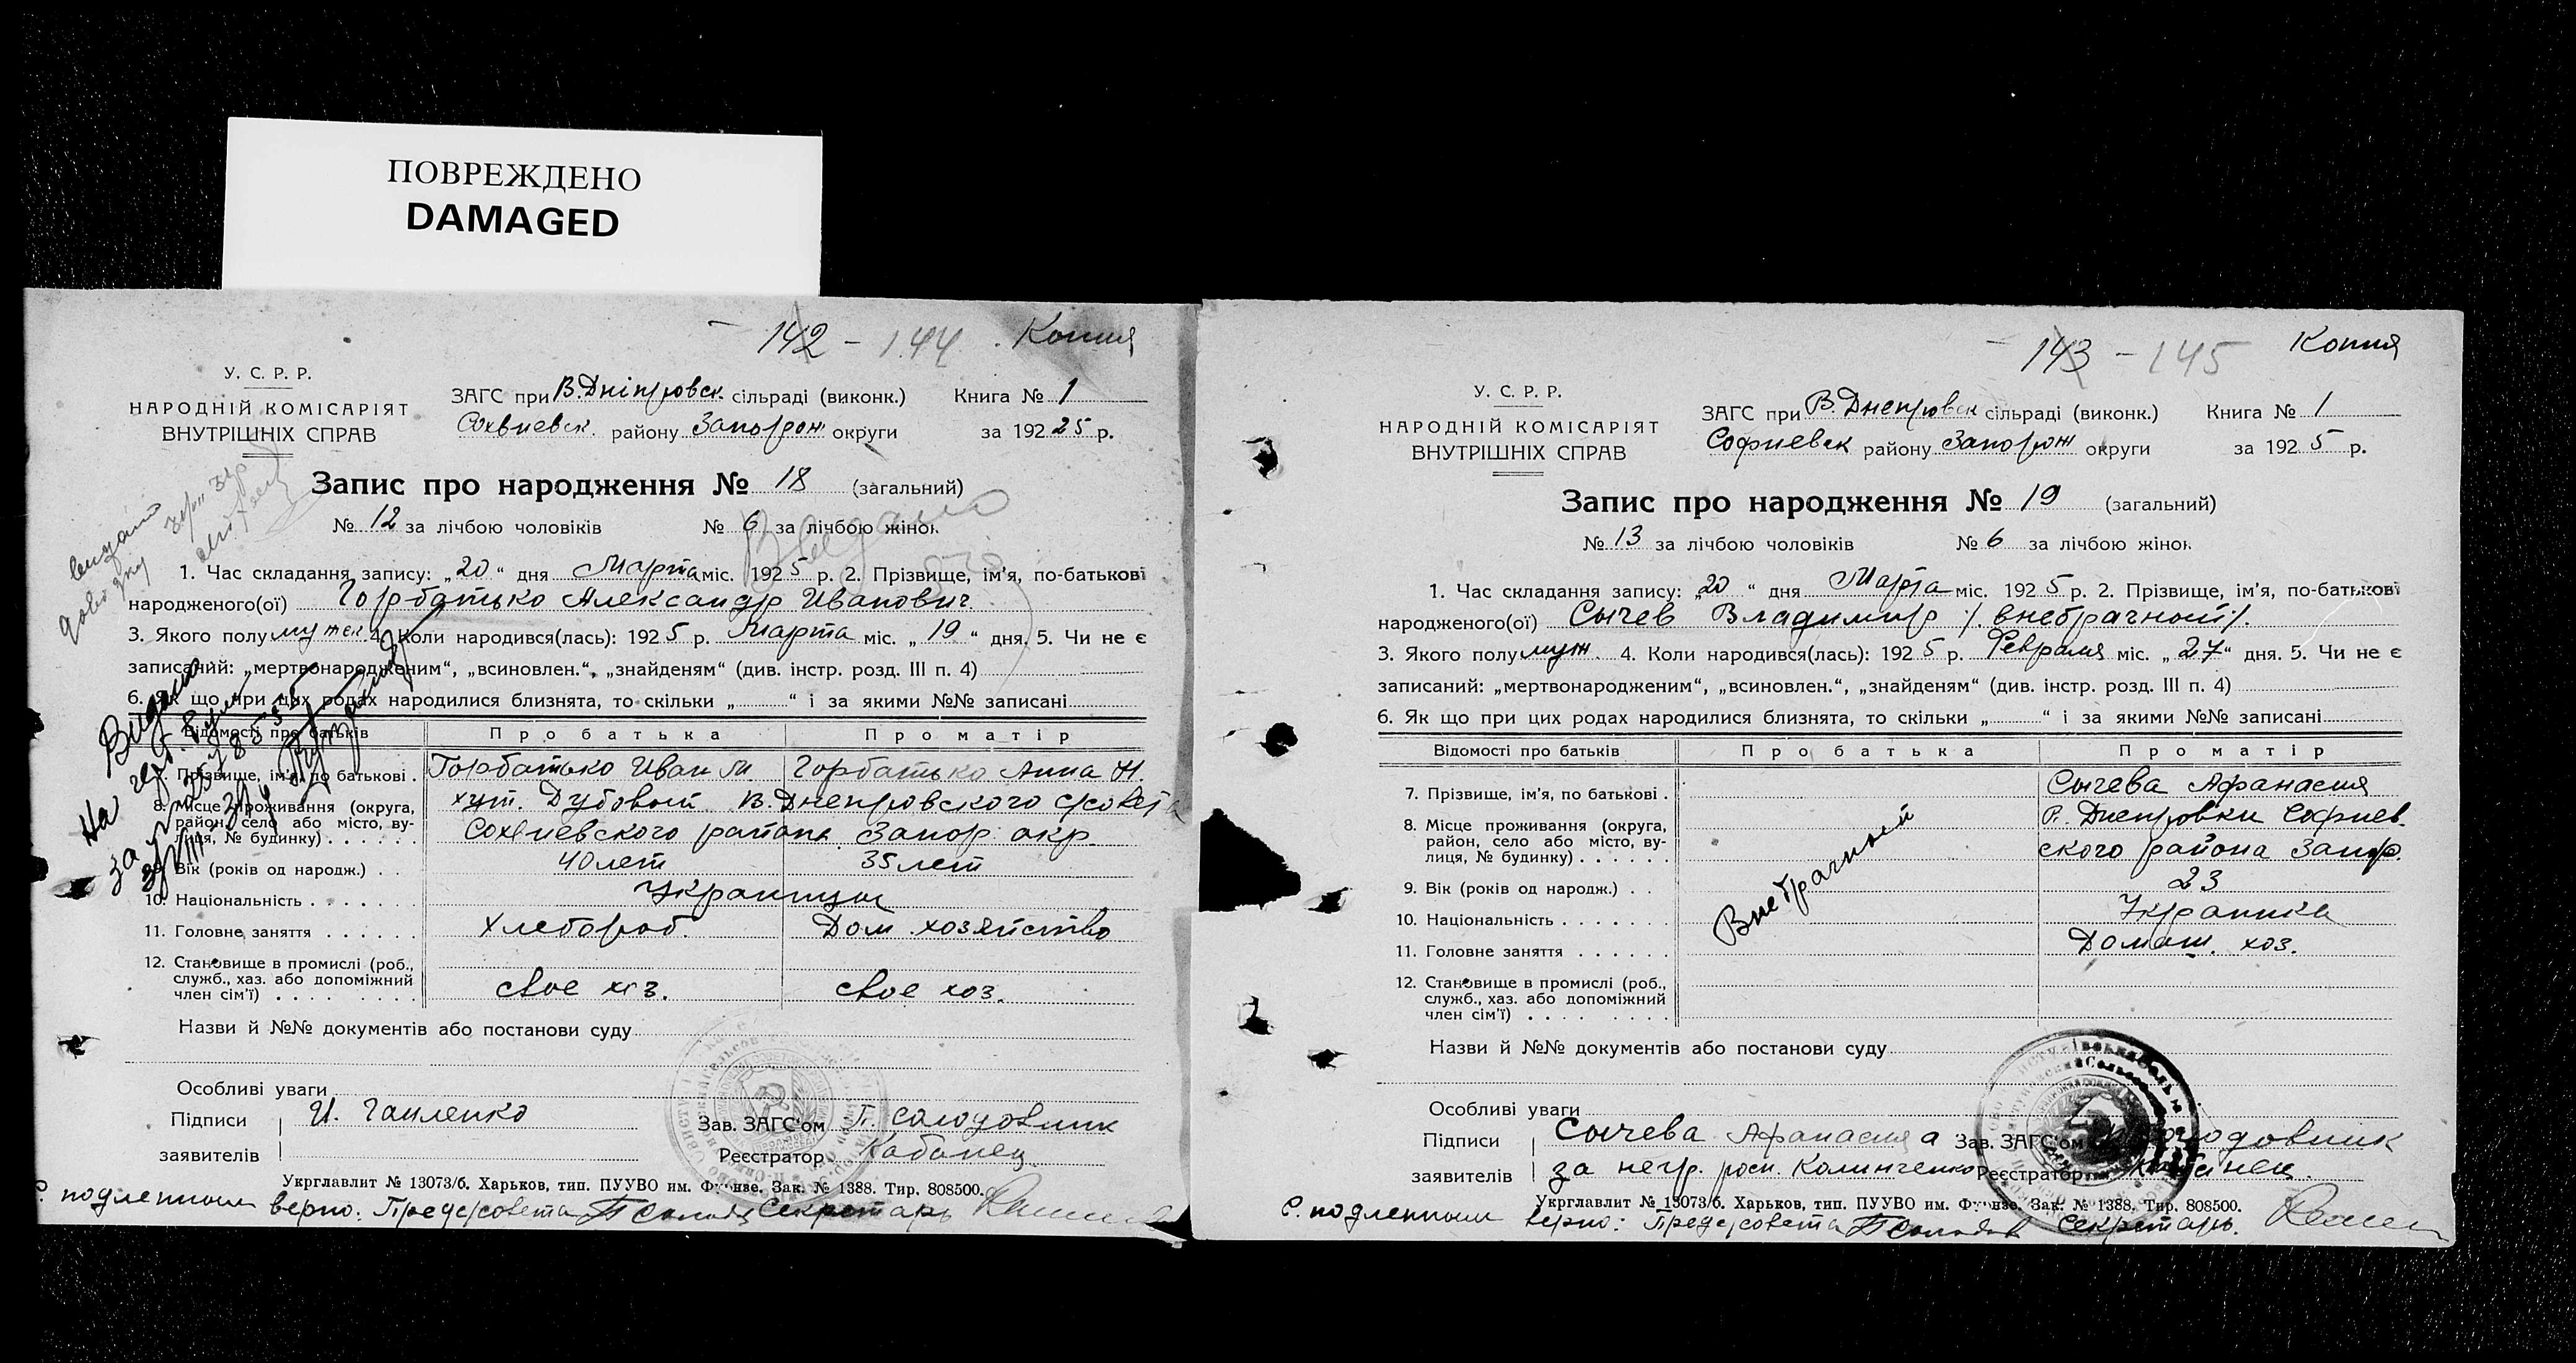 ПОВРЕЖДЕНО
DAMAGED
142 - 144. Копия
У. С. Р. Р.
НАРОДНІЙ КОМІСАРІЯТ
ВНУТРІШНІХ СПРАВ
ЗАГС при В.Дніпровск. сільраді (виконк.) Книга № 1
Сохвиевск. району Запорож округи за 192 25 р.
Запис про народження № 18 (загальний)
№ 12 за лічбою чоловіків № 6 за лічбою жінок
Видано
1. Час складання запису: „20“ дня Марта міс. 192 5 р. 2. Прізвище, ім’я, по-батькові
народженого(ої) Горбатько Александр Иванович
3. Якого полу муж 4. Коли народився(лась): 192 5 р. Марта міс. „19“ дня. 5. Чи не є
записаний: „мертвонародженим“, „всиновлен.“, „знайденям“ (див. інстр. розд. III п. 4)
6. Як що при цих родах народилися близнята, то скільки „ “ і за якими №№ записані
Видано
На
за №
Відомості про батьків Про батька Про матір
7. Прізвище, ім’я, по батькові . Горбатько Иван М Горбатько Анна Н.
8. Місце проживання (округа, район, село або місто, ву-лиця, № будинку) . . . . . . хут. Дубовый В.Днепровского с/совета
Сохвиевского района Запор. окр.
9. Вік (років од народж.) . . 40 лет 35 лет
10. Національність . . . . . . . Украинцы
11. Головне заняття . . . . . . Хлебороб. Дом. хозяйство
12. Становище в промислі (роб., служб., хаз. або допоміжний член сім’ї) . . . . . . . . свое хоз. свое хоз.
Назви й №№ документів або постанови суду
Особливі уваги
Підписи И. Гайленко Зав. ЗАГС’ом П. Солодовник
заявителів Реєстратор Кабанец
Укрглавлит № 13073/б. Харьков, тип. ПУУВО им. Фрунзе. Зак. № 1388. Тир. 808500.
С. подленным верно: Пред с/совета Секретарь
143 - 145 Копия
У. С. Р. Р.
НАРОДНІЙ КОМІСАРІЯТ
ВНУТРІШНІХ СПРАВ
ЗАГС при В. Днепровск сільраді (виконк.) Книга № 1
Софиевск району Запорож округи за 192 5 р.
Запис про народження № 19 (загальний)
№ 13 за лічбою чоловіків № 6 за лічбою жінок
1. Час складання запису: „20“ дня Марта міс. 192 5 р. 2. Прізвище, ім’я, по-батькові
народженого(ої) Сычев Владимир /. внебрачный/.
3. Якого полу муж. 4. Коли народився(лась): 192 5 р. Февраля міс. „27“ дня. 5. Чи не є
записаний: „мертвонародженим“, „всиновлен.“, „знайденям“ (див. інстр. розд. III п. 4)
6. Як що при цих родах народилися близнята, то скільки „ “ і за якими №№ записані
Відомості про батьків Про батька Про матір
7. Прізвище, ім’я, по батькові . Сычева Афанасия
8. Місце проживання (округа, район, село або місто, ву-лиця, № будинку) . . . . . . Днепровки Софиев.
ского района Запор.
Внебрачный
9. Вік (років од народж.) . . 23
10. Національність . . . . . . Украинка
11. Головне заняття . . . . . . Домаш. хоз.
12. Становище в промислі (роб., служб., хаз. або допоміжний член сім’ї) . . . . . . . .
Назви й №№ документів або постанови суду
Особливі уваги
Підписи Сычева Афанасия а Зав. ЗАГС’ом Солодовник
заявителів за негр. росп. Калинченко Реєстратор Кабанец.
Укрглавлит № 13073/б. Харьков, тип. ПУУВО им. Фрунзе. Зак. № 1388. Тир. 808500.
С. подленным верно: Пред с/совета Секретарь.